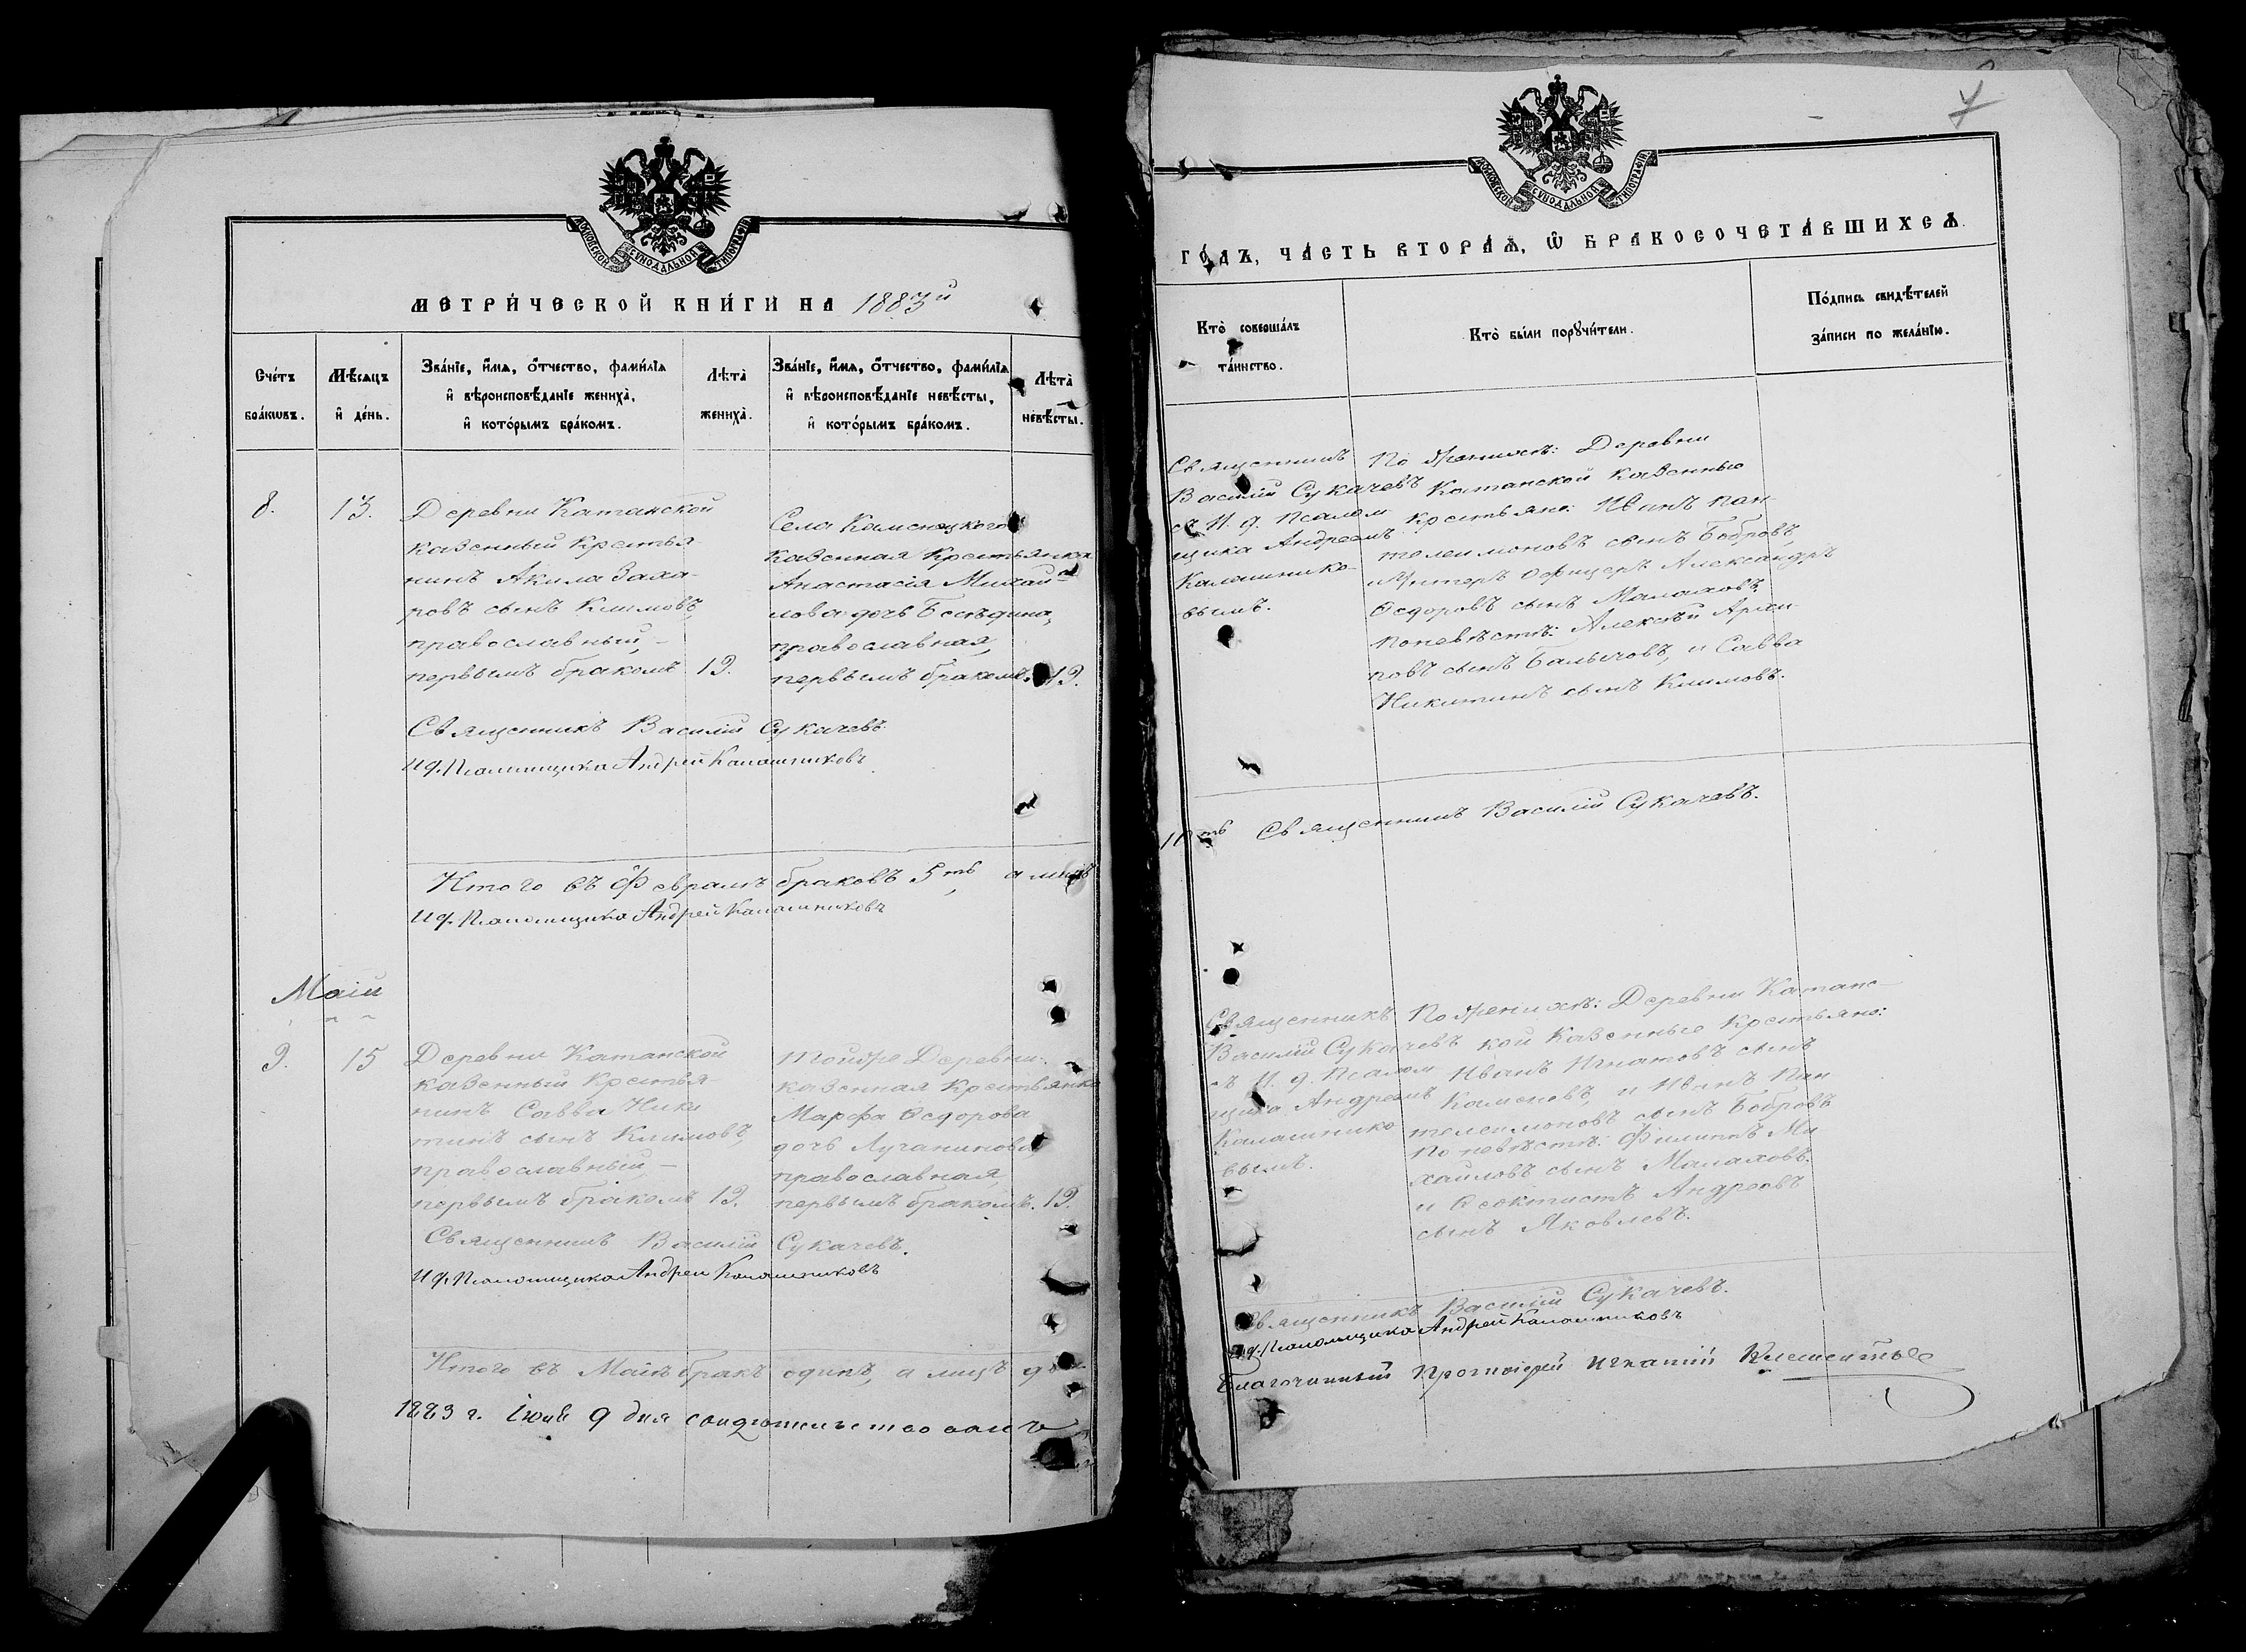 МОСКОВСКОЙ СѴНОДАЛЬНОЙ ТИПОГРАФІИ
МЕТРИ́ЧЕСКОЙ КНИ́ГИ НА 1883й
Сче́тъ бра́кѡвъ.
Мѣ́сяцъ и де́нь.
Зва́нїе, и́мя, о́тчество, фами́лїя
и вѣроисповѣ́данїе жениха̀,
и кото́рымъ бра́комъ.
Лѣта̀ жениха̀.
Зва́нїе, и́мя, о́тчество, фами́лїя
и вѣроисповѣ́данїе невѣ́сты,
и кото́рымъ бра́комъ.
Лѣта̀ невѣ́сты.
8.
13.
Деревни Катанской
казенный Крестья-
нинъ Акила Заха-
ровъ сынъ Климовъ,
православный, –
первымъ бракомъ
19.
Села Каменскаго
казенная Крестьянка
Анастасія Михай-
лова дочь Бесѣдина,
православная,
первымъ бракомъ.
19.
Священникъ Василій Сукачевъ
И д. Псаломщика Андрей Калашниковъ
Итого въ Февралѣ браковъ 5ть, а лицъ
И д. Псаломщика Андрей Калашниковъ
Маій
9.
15
Деревни Катанской
казенный Крестья-
нинъ Савва Ники
тинъ сынъ Климовъ,
православный, –
первымъ бракомъ
19.
тойже Деревни
казенная Крестьянка
Марфа Ѳедорова
дочь Лучанинова,
православная,
первымъ бракомъ.
19.
Священникъ Василій Сукачевъ.
И д. Псаломщика Андрей Калашниковъ
Итого въ Маѣ бракъ одинъ, а лицъ
1883 г. Іюня 9 дня свидѣтельствовалъ
7
МОСКОВСКОЙ СѴНОДАЛЬНОЙ ТИПОГРАФІИ
ГО́ДЪ, ЧА́СТЬ ВТОРА́Я, Ѿ БРАКОСОЧЕТА́ВШИХСЯ.
Кто̀ соверша́лъ
та́инство.
Кто̀ бы́ли порꙋчи́тели.
По́дпись свидѣ́телей
за́писи по жела́нїю.
Священникъ
Василій Сукачевъ
съ И. д. Псалом
щика Андреемъ
Калашнико-
вымъ.
По женихѣ: Деревни
Катанской казенные
Крестьяне: Иванъ Пан-
телеимоновъ сынъ Бобровъ,
и Унтеръ Офицеръ Александръ
Ѳедоровъ сынъ Малаховъ,
по невѣстѣ: Алексѣй Архи-
повъ сынъ Балычовъ, и Савва
Никитинъ сынъ Климовъ.
Священникъ Василій Сукачевъ.
Священникъ
Василій Сукачевъ
съ И. д. Псалом
щика Андреемъ
Калашнико
вымъ.
По женихѣ: Деревни Катанс-
кой Казенные Крестьяне:
Иванъ Игнатовъ сынъ
Каменевъ, и Иванъ Пан
телеимоновъ сынъ Бобровъ
По невѣстѣ: Филиппъ Ми
хайловъ сынъ Малаховъ.
и Ѳеоктистъ Андреевъ
сынъ Яковлевъ.
Священникъ Василій Сукачевъ.
И д. Псаломщика Андрей Калашниковъ
Благочинный Протоіерей Игнатій